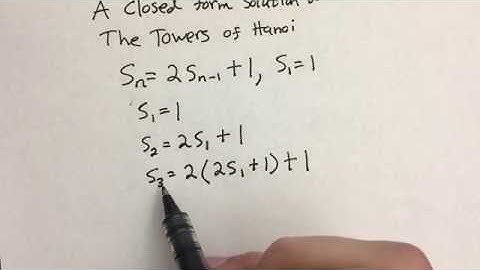 A Closed form Solution
The Towers of Hanoi
Sₙ = 2Sₙ₋₁ + 1, S₁ = 1
S₁ = 1
S₂ = 2S₁ + 1
S₃ = 2(2S₁ + 1) + 1